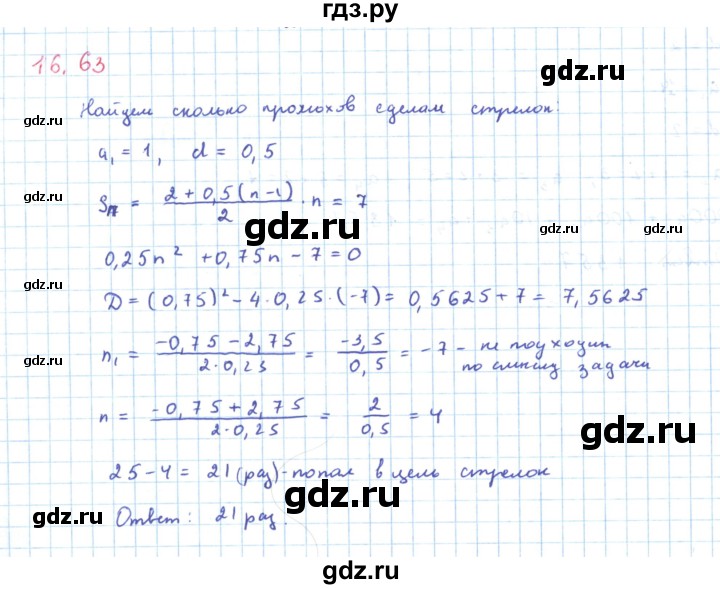 гдз.ру
16.63
Найдем сколько промохов сделал стрелок:
a₁ = 1, d = 0,5
Sₙ = (2 + 0,5(n-1))/2 · n = 7
0,25n² + 0,75n - 7 = 0
D = (0,75)² - 4·0,25·(-7) = 0,5625 + 7 = 7,5625
n₁ = (-0,75 - 2,75)/(2·0,25) = (-3,5)/(0,5) = -7 - не подходит
по смыслу задачи
n = (-0,75 + 2,75)/(2·0,25) = 2/(0,5) = 4
25 - 4 = 21 (раз) - попал в цель стрелок
Ответ: 21 раз.
gdz.ru
gdz.ru
gdz.ru
gdz.ru
gdz.ru
gdz.ru
gdz.ru
gdz.ru
gdz.ru
gdz.ru
gdz.ru
gdz.ru
gdz.ru
gdz.ru